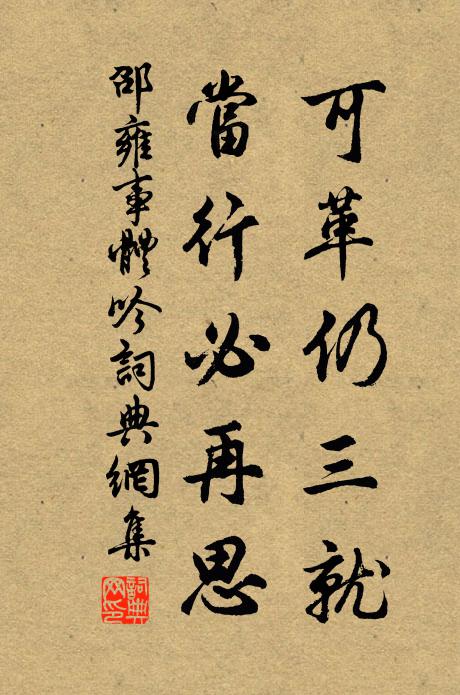 可革仍三就
當行必再思
邵雍事體吟詞典網集
詞典網印